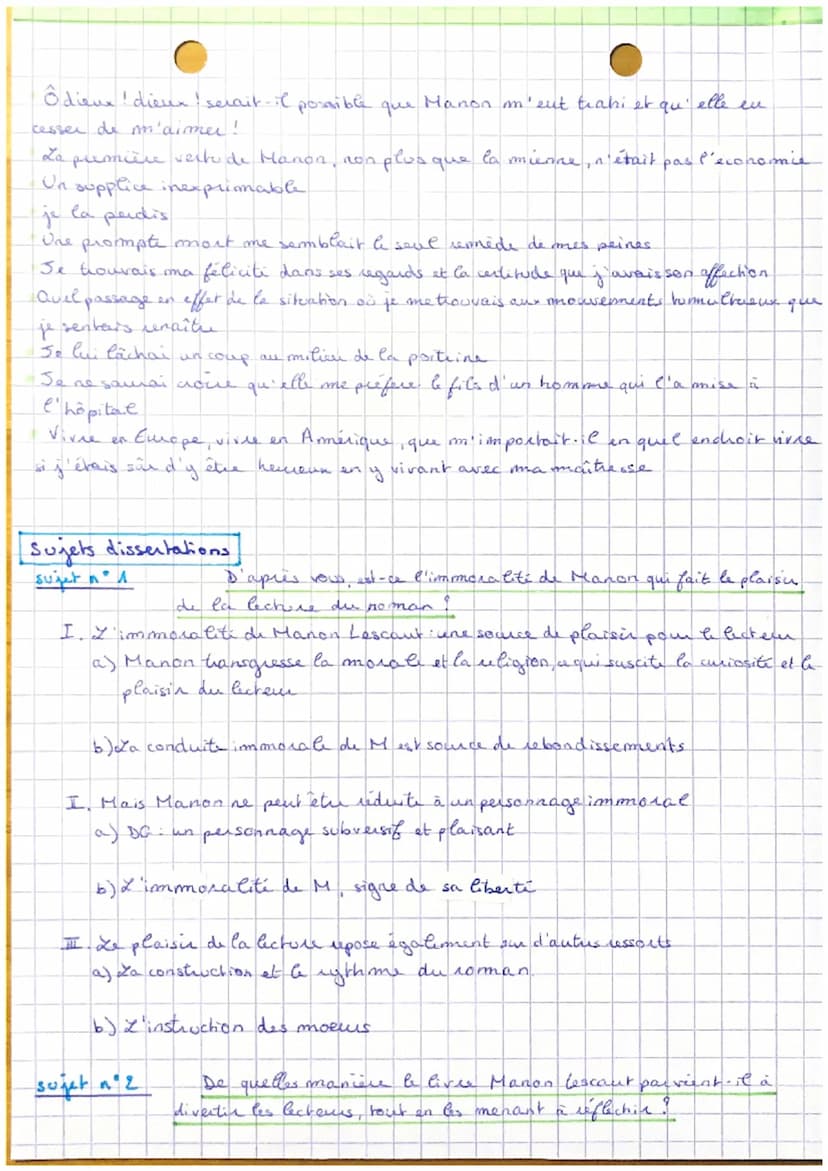 Ô dieux ! dieux ! serait-il possible que Manon m'eut trahi et qu'elle eu
cesser de m'aimer !
La première vertu de Manon, non plus que la mienne, n'était pas l'économie
Un supplice inexprimable
je la perdis
Une prompte mort me semblait le seul remède de mes peines
Je trouvais ma félicité dans ses regards et la certitude que j'avais son affection
Quel passage en effet de la situation où je me trouvais aux mouvements tumultueux que
je sentais renaître
Je lui lâchai un coup au milieu de la poitrine
Je ne saurai croire qu'elle me préfère le fils d'un homme qui l'a mise à
l'hôpital
Vivre en Europe, vivre en Amérique, que m'importait-il en quel endroit vivre
si j'étais sûr d'y être heureux en y vivant avec ma maîtresse
Sujets dissertations
sujet n°1 D'après vous, est-ce l'immoralité de Manon qui fait le plaisir
de la lecture du roman ?
I. L'immoralité de Manon Lescaut : une source de plaisir pour le lecteur
a) Manon transgresse la morale et la religion, ce qui suscite la curiosité et le
plaisir du lecteur
b) La conduite immorale de M est source de rebondissements
I. Mais Manon ne peut être réduite à un personnage immoral
a) DG : un personnage subversif et plaisant
b) L'immoralité de M, signe de sa liberté
III. Le plaisir de la lecture repose également sur d'autres ressorts
a) La construction et le rythme du roman.
b) L'instruction des moeurs
sujet n°2 De quelles manière le livre Manon Lescaut parvient-il à
divertir les lecteurs, tout en les menant à réfléchir ?